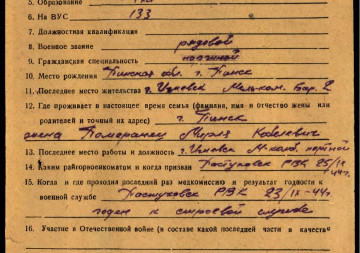 5. Образование
6. На ВУС 133
7. Должностная квалификация
8. Военное звание рядовой
9. Гражданская специальность портной
10. Место рождения Пинская обл. г. Пинск
11. Последнее место жительства г. Бар. 2
12. Где проживает в настоящее время семья (фамилия, имя и отчество жены или
родителей и точный их адрес) г. Пинск
жена Померанец
13. Последнее место работы и должность г. портной
14. Каким райгорвоенкоматом и когда призван РВК 25/IX
44г.
15. Когда и где проходил последний раз медкомиссию и результат годности к
военной службе РВК 23/IX-44г.
годен к строевой службе
16. Участие в Отечественной войне (в составе какой последней части в качестве